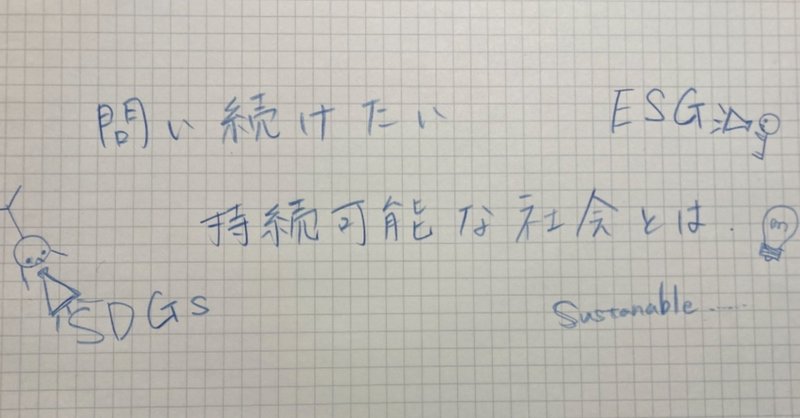 問い続けたい
ESG
持続可能な社会とは.
SDGs
Sustanable......